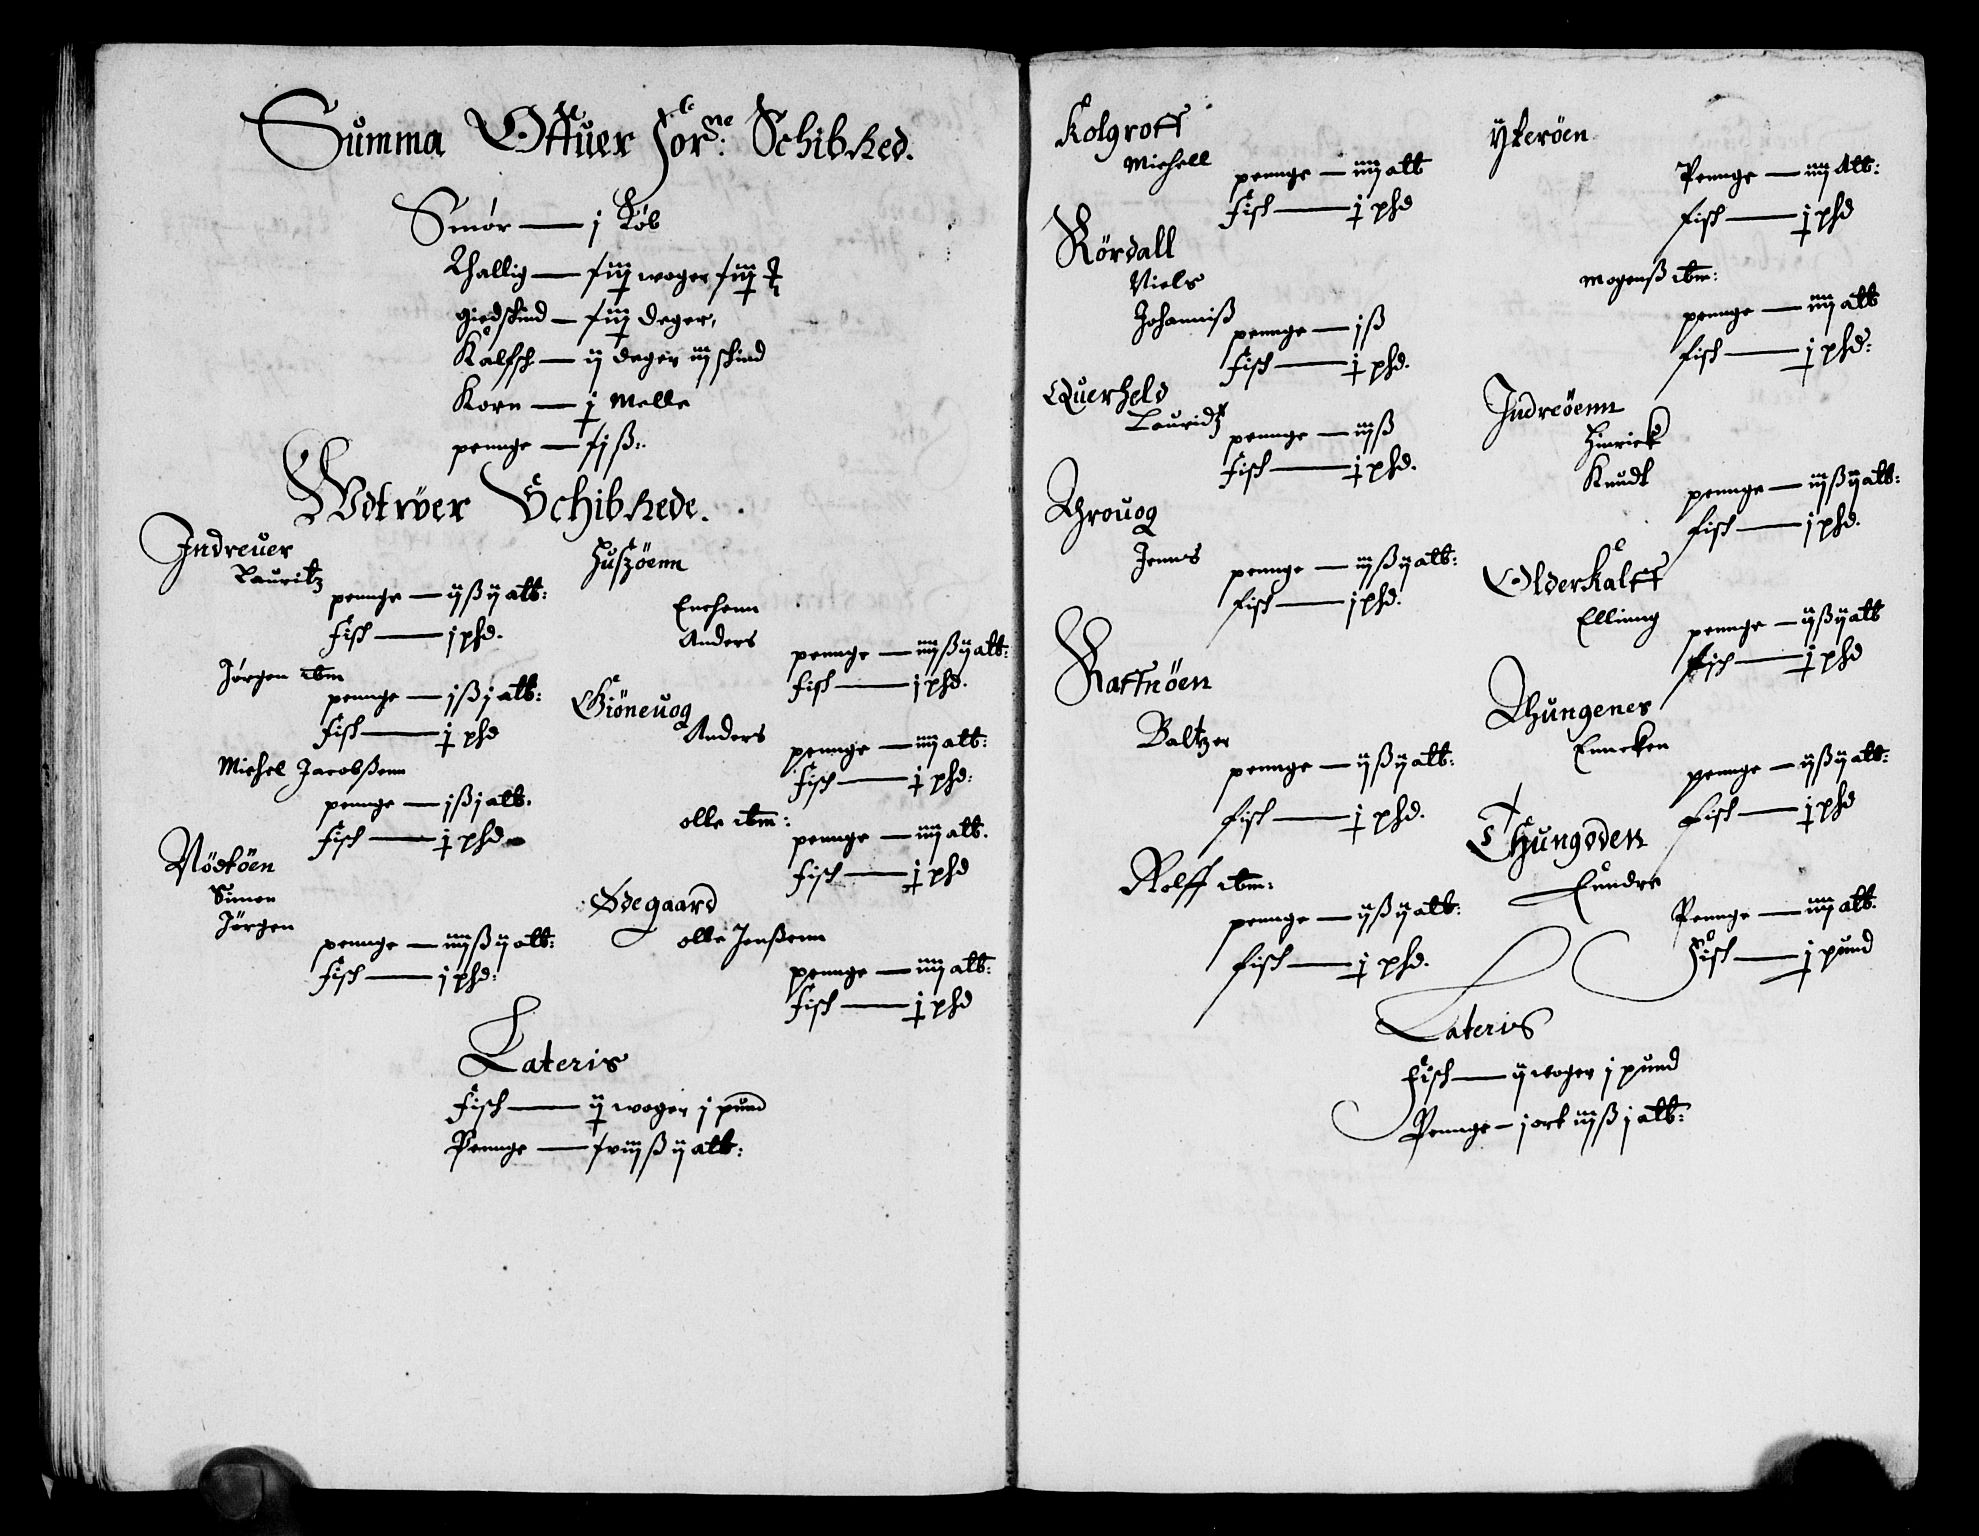 Summa Øttuer for:ne Schibred.
Smör — j Röb
Thallig — fiiij woger fiiij
giedskind — fiiij deger,
Kalfsk — ij deger iij skind
Korn — j Melle
pennge — fj ß:
Wdtröer Schibrede.
Indreuer
Lauritz
pennge — ij ß ij alb:
Fisk — j phd.
Jørgen ibm
pennge — j ß j alb:
Fisk — j phd
Michel Jacobßenn
pennge — j ß j alb.
Fisk — j phd
Nödtöen
Simen
Jørgen
pennge — iiij ß ij alb:
Fisk — j phd:
Husöenn
Enchenn
Anders
pennge — iiij ß ij alb:
Fisk — j phd.
Giöneuog
Anders
pennge — iiij alb:
Fisk — j phd:
olle ibm:
pennge — iiij alb.
Fisk — j phd
Ødegaard
olle Jenßenn
pennge — iiij alb:
Fisk — j phd
Lateris
Fisk — ij woger j pund
Pennge — fviij ß ij alb:
Kolgroff
Michell
pennge — iiij alb
Fisk — j phd
Rördall
Niels
Johanniß
pennge — j ß
Fisk — j phd.
Querheld
Lauridtz
pennge — iij ß
Fisk — j phd.
Throuog
Jenns
pennge — iij ß ij alb:
Fisk — j phd.
Raffnöen
Baltzer
pennge — ij ß ij alb:
Fisk — j phd.
Rolff ibm:
pennge — ij ß ij alb:
Fisk — j phd.
ÿteröen
Pennge — iiij Alb:
Fisk — j phd
Mogenß ibm:
pennge — iiij alb
Fisk — j phd:
Indreöenn
Hinrick
Knudt
pennge — iij ß ij alb:
Fisk — j phd.
Olderkalff
Ellinng
pennge — ij ß ij alb
Fisk — j phd
Thungenes
Enncken
pennge — ij ß ij alb:
Fisk — j phd
Thungodden
Eundre
Pennge — iiij alb.
Fisk — j pund
Lateris
Fisk — ij woger j pund
Pennge — j ort iij ß j alb: